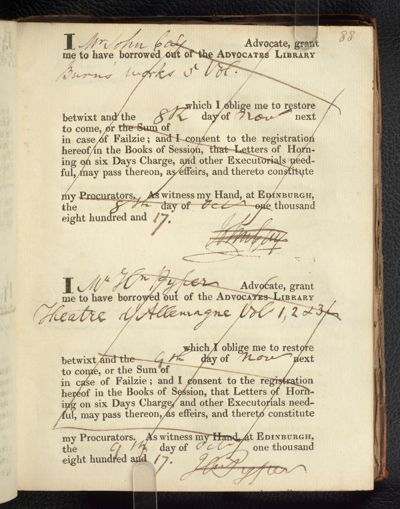 88
I Mr John Advocate, grant
me to have borrowed out of the ADVOCATES LIBRARY
Burns works 5 Vol.
which I oblige me to restore
betwixt and the 8th day of Nov next
to come, or the Sum of
in case of Failzie; and I consent to the registration
hereof in the Books of Session, that Letters of Horn-
ing on six Days Charge, and other Executorials need-
ful, may pass thereon, as effeirs, and thereto constitute
my Procurators. As witness my Hand, at EDINBURGH,
the 8th day of Oct one thousand
eight hundred and 17.
I Mr Pyper Advocate, grant
me to have borrowed out of the ADVOCATES LIBRARY
Theatre Allemagne Vol 1, 2 & 3
which I oblige me to restore
betwixt and the 9th day of Nov next
to come, or the Sum of
in case of Failzie; and I consent to the registration
hereof in the Books of Session, that Letters of Horn-
ing on six Days Charge, and other Executorials need-
ful, may pass thereon, as effeirs, and thereto constitute
my Procurators. As witness my Hand, at EDINBURGH,
the 9th day of Oct one thousand
eight hundred and 17.
Pyper